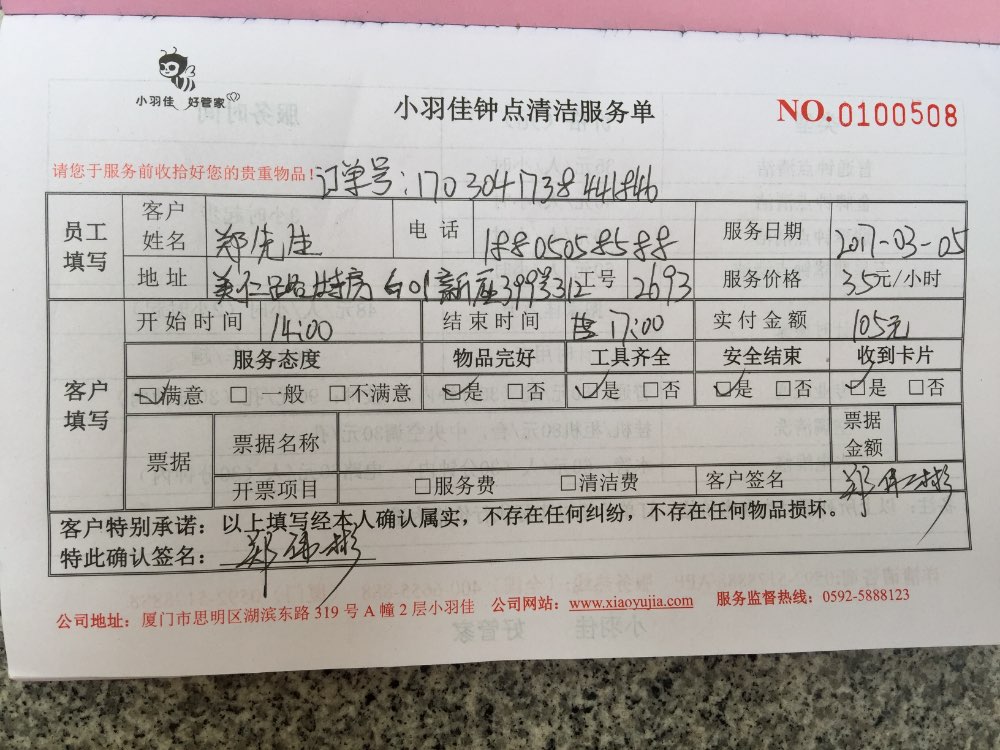 小羽佳 好管家
小羽佳钟点清洁服务单
NO.0100508
请您于服务前收拾好您的贵重物品！ 订单号：170304738441846
员工填写 客户姓名 郑先生 电话 18805058588 服务日期 2017-03-05
地址 美仁 新座399号312 工号 2693 服务价格 35元/小时
客户填写 开始时间 14:00 结束时间 17:00 实付金额 105元
服务态度 物品完好 工具齐全 安全结束 收到卡片
☑满意 □一般 □不满意 ☑是 □否 ☑是 □否 ☑是 □否 ☑是 □否
票据 票据名称 票据金额
开票项目 □服务费 □清洁费 客户签名 郑伟彬
客户特别承诺：以上填写经本人确认属实，不存在任何纠纷，不存在任何物品损坏。
特此确认签名：郑伟彬
公司地址：厦门市思明区湖滨东路 319 号 A 幢 2 层小羽佳 公司网站：www.xiaoyujia.com 服务监督热线：0592-5888123